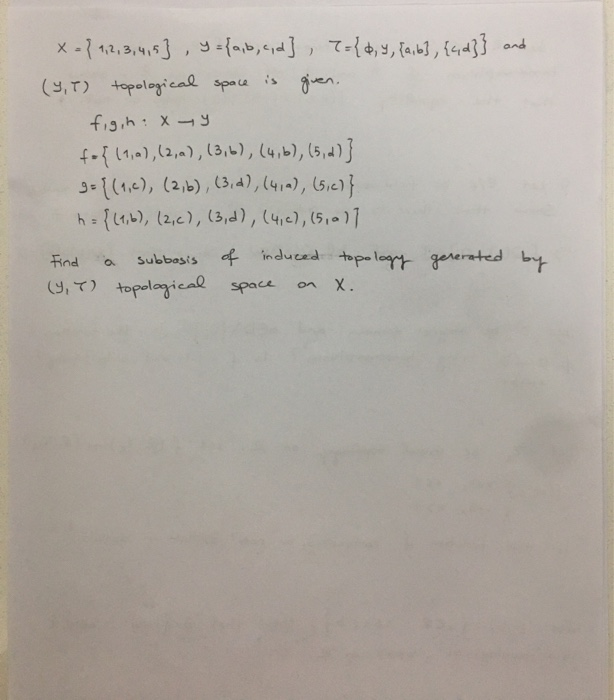 X = { 1,2,3,4,5 } , Y = {a,b,c,d} , τ = {ϕ, Y, {a,b}, {c,d}} and
(Y,τ) topological space is given.
f,g,h : X → Y
f = { (1,a), (2,a), (3,b), (4,b), (5,d) }
g = { (1,c), (2,b), (3,d), (4,a), (5,c) }
h = { (1,b), (2,c), (3,d), (4,c), (5,a) }
Find a subbasis of induced topology generated by
(Y,τ) topological space on X.